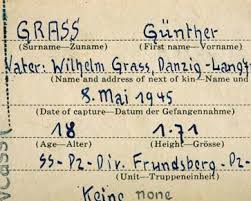 GRASS Günther
(Surname—Zuname) (First name—Vorname)
Vater: Wilhelm Grass, Danzig-Langf
(Name and address of next of kin—Name und
8. Mai 1945
(Date of capture—Datum der Gefangennahme)
18 1.71
(Age—Alter) (Height—Grösse)
SS-Pz-Div. Frundsberg-Pz-
(Unit—Truppeneinheit)
Keine none